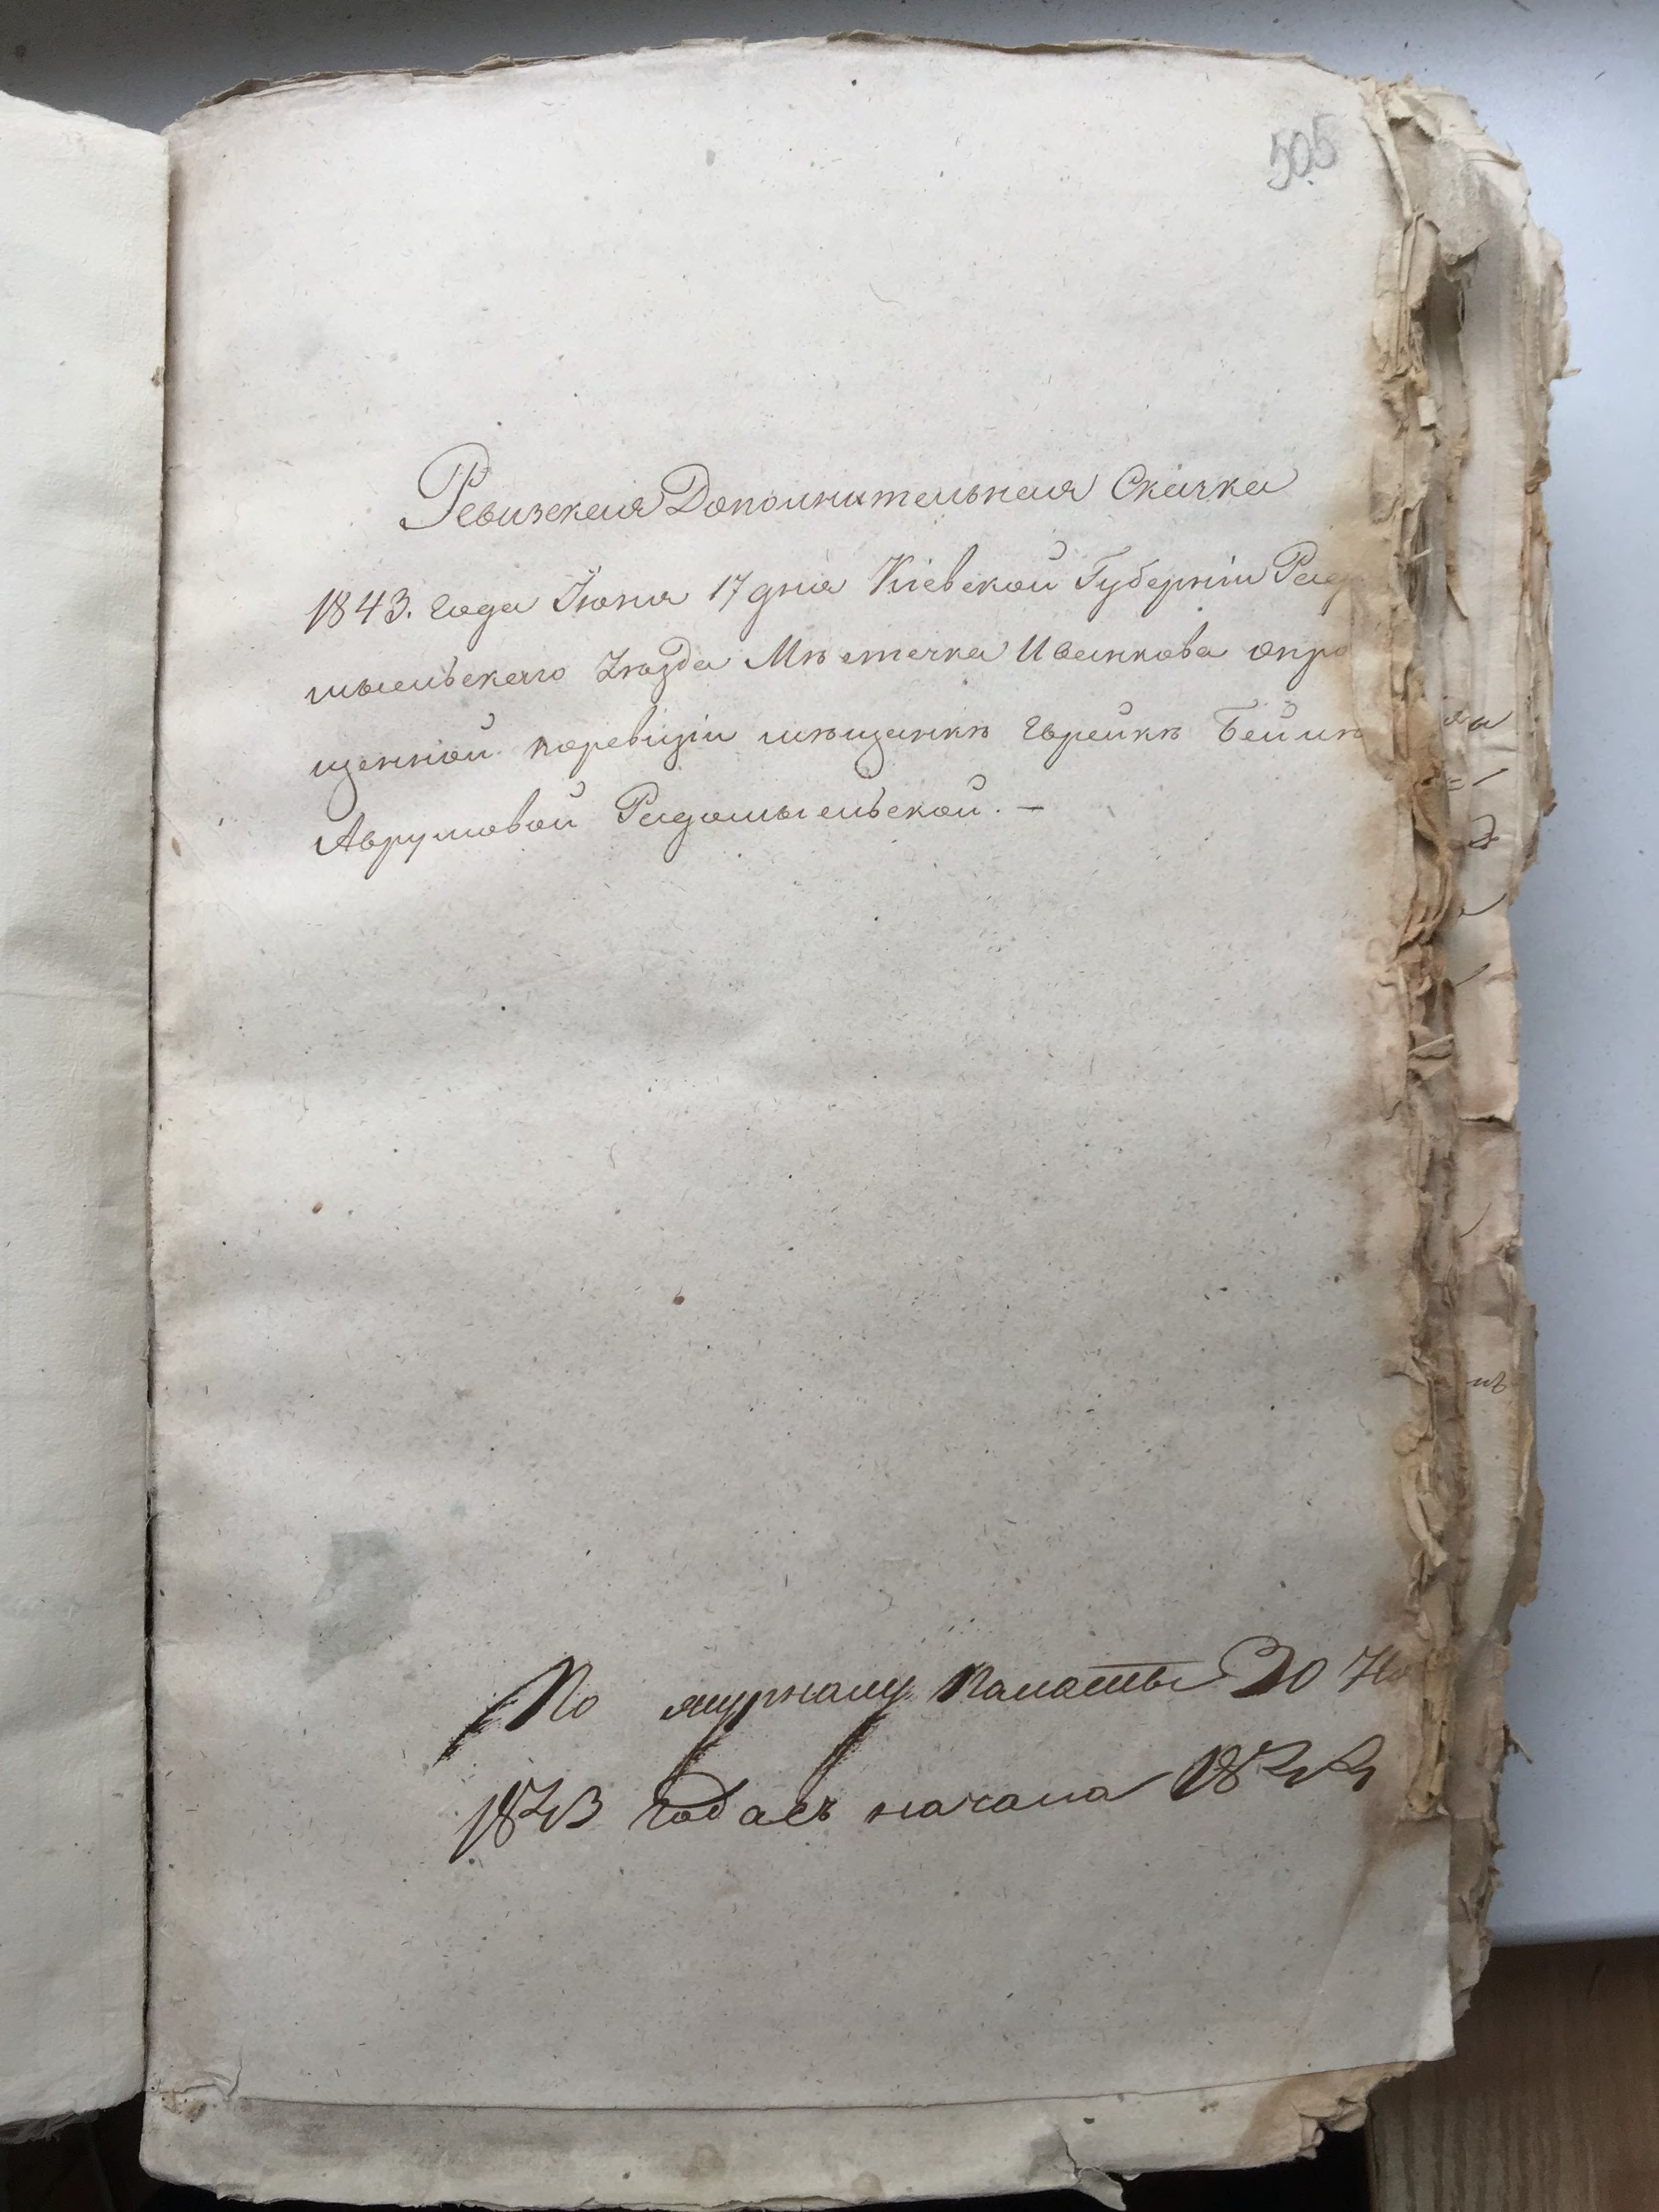 505
Ревизская Дополнительная Скаска
1843. года Іюня 17 дня Кіевской Губерніи Радо
мысльскаго Уѣзда Мѣстечка Иванкова опро
щенной поревизіи мѣщанкѣ Еврейкѣ Беймѣ
Аврумовой Радомысльской. —
По журналу Палаты 20 Но
1843 года съ начала 1844